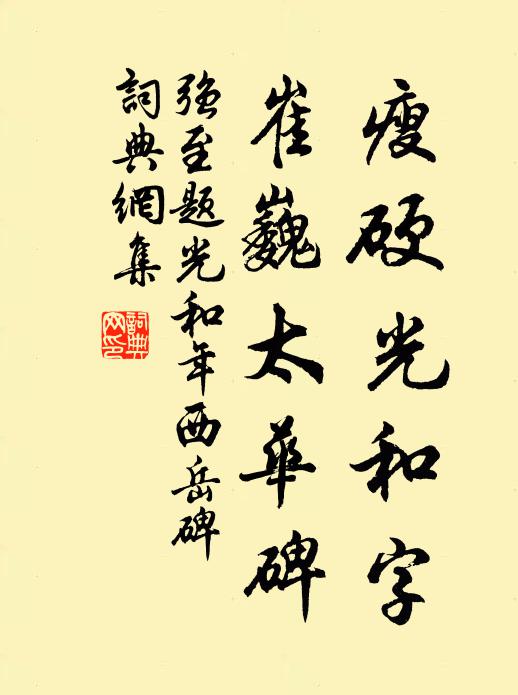 瘦硬光和字
崔巍太華碑
强至题光和年西岳碑
詞典網集
詞典网印